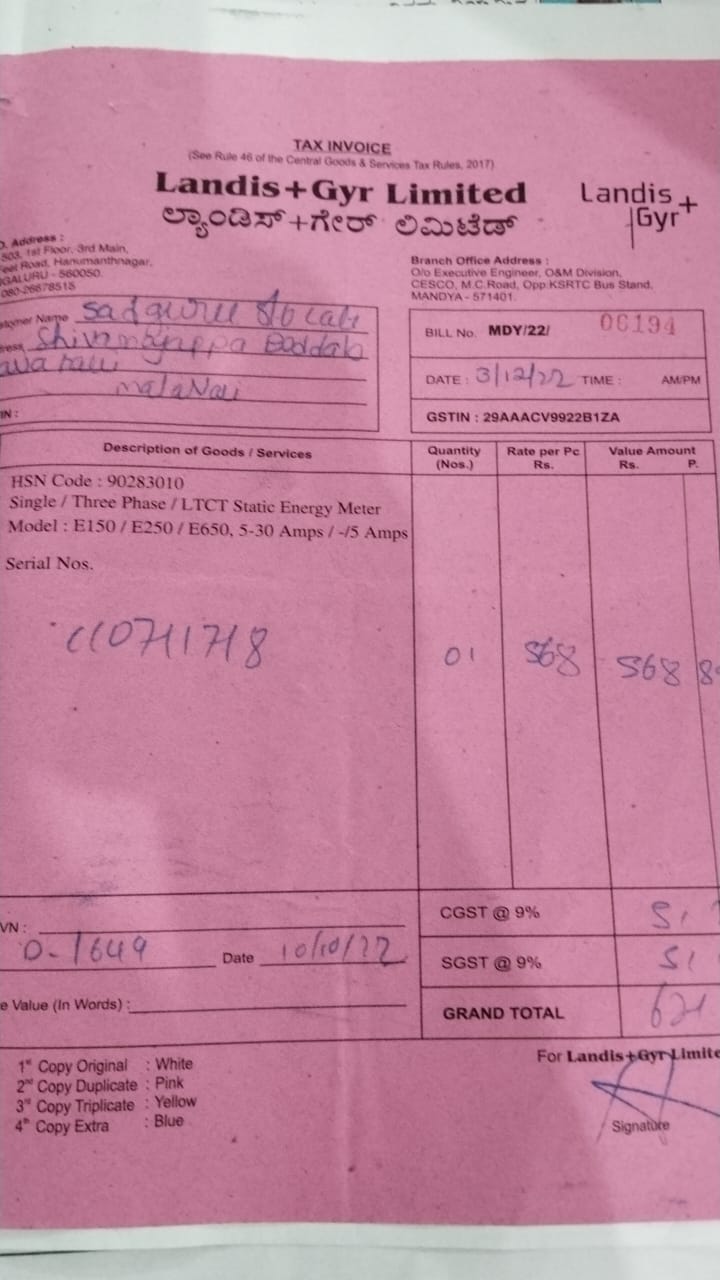 TAX INVOICE
(See Rule 46 of the Central Goods & Services Tax Rules, 2017)
Landis+Gyr Limited
ಲ್ಯಾಂಡಿಸ್+ಗೇರ್ ಲಿಮಿಟೆಡ್
Landis
Gyr+
Address :
503, 1st Floor, 3rd Main,
Road, Hanumanthnagar,
GALURU - 560050.
080-26678515
Branch Office Address :
O/o Executive Engineer, O&M Division,
CESCO, M.C.Road, Opp.KSRTC Bus Stand,
MANDYA - 571401.
tomer Name sadguru
ress
IN :
BILL No. MDY/22/ 06194
DATE : 3/12/22 TIME : AM/PM
GSTIN : 29AAACV9922B1ZA
Description of Goods / Services Quantity (Nos.) Rate per Pc Rs. Value Amount Rs. P.
HSN Code : 90283010
Single / Three Phase / LTCT Static Energy Meter
Model : E150 / E250 / E650, 5-30 Amps / -/5 Amps
Serial Nos.
01 568 568
VN : CGST @ 9% 51
0-1649 Date 10/10/22 SGST @ 9% 51
e Value (In Words) : GRAND TOTAL
1st Copy Original : White
2nd Copy Duplicate : Pink
3rd Copy Triplicate : Yellow
4th Copy Extra : Blue
For Landis+Gyr Limite
Signature